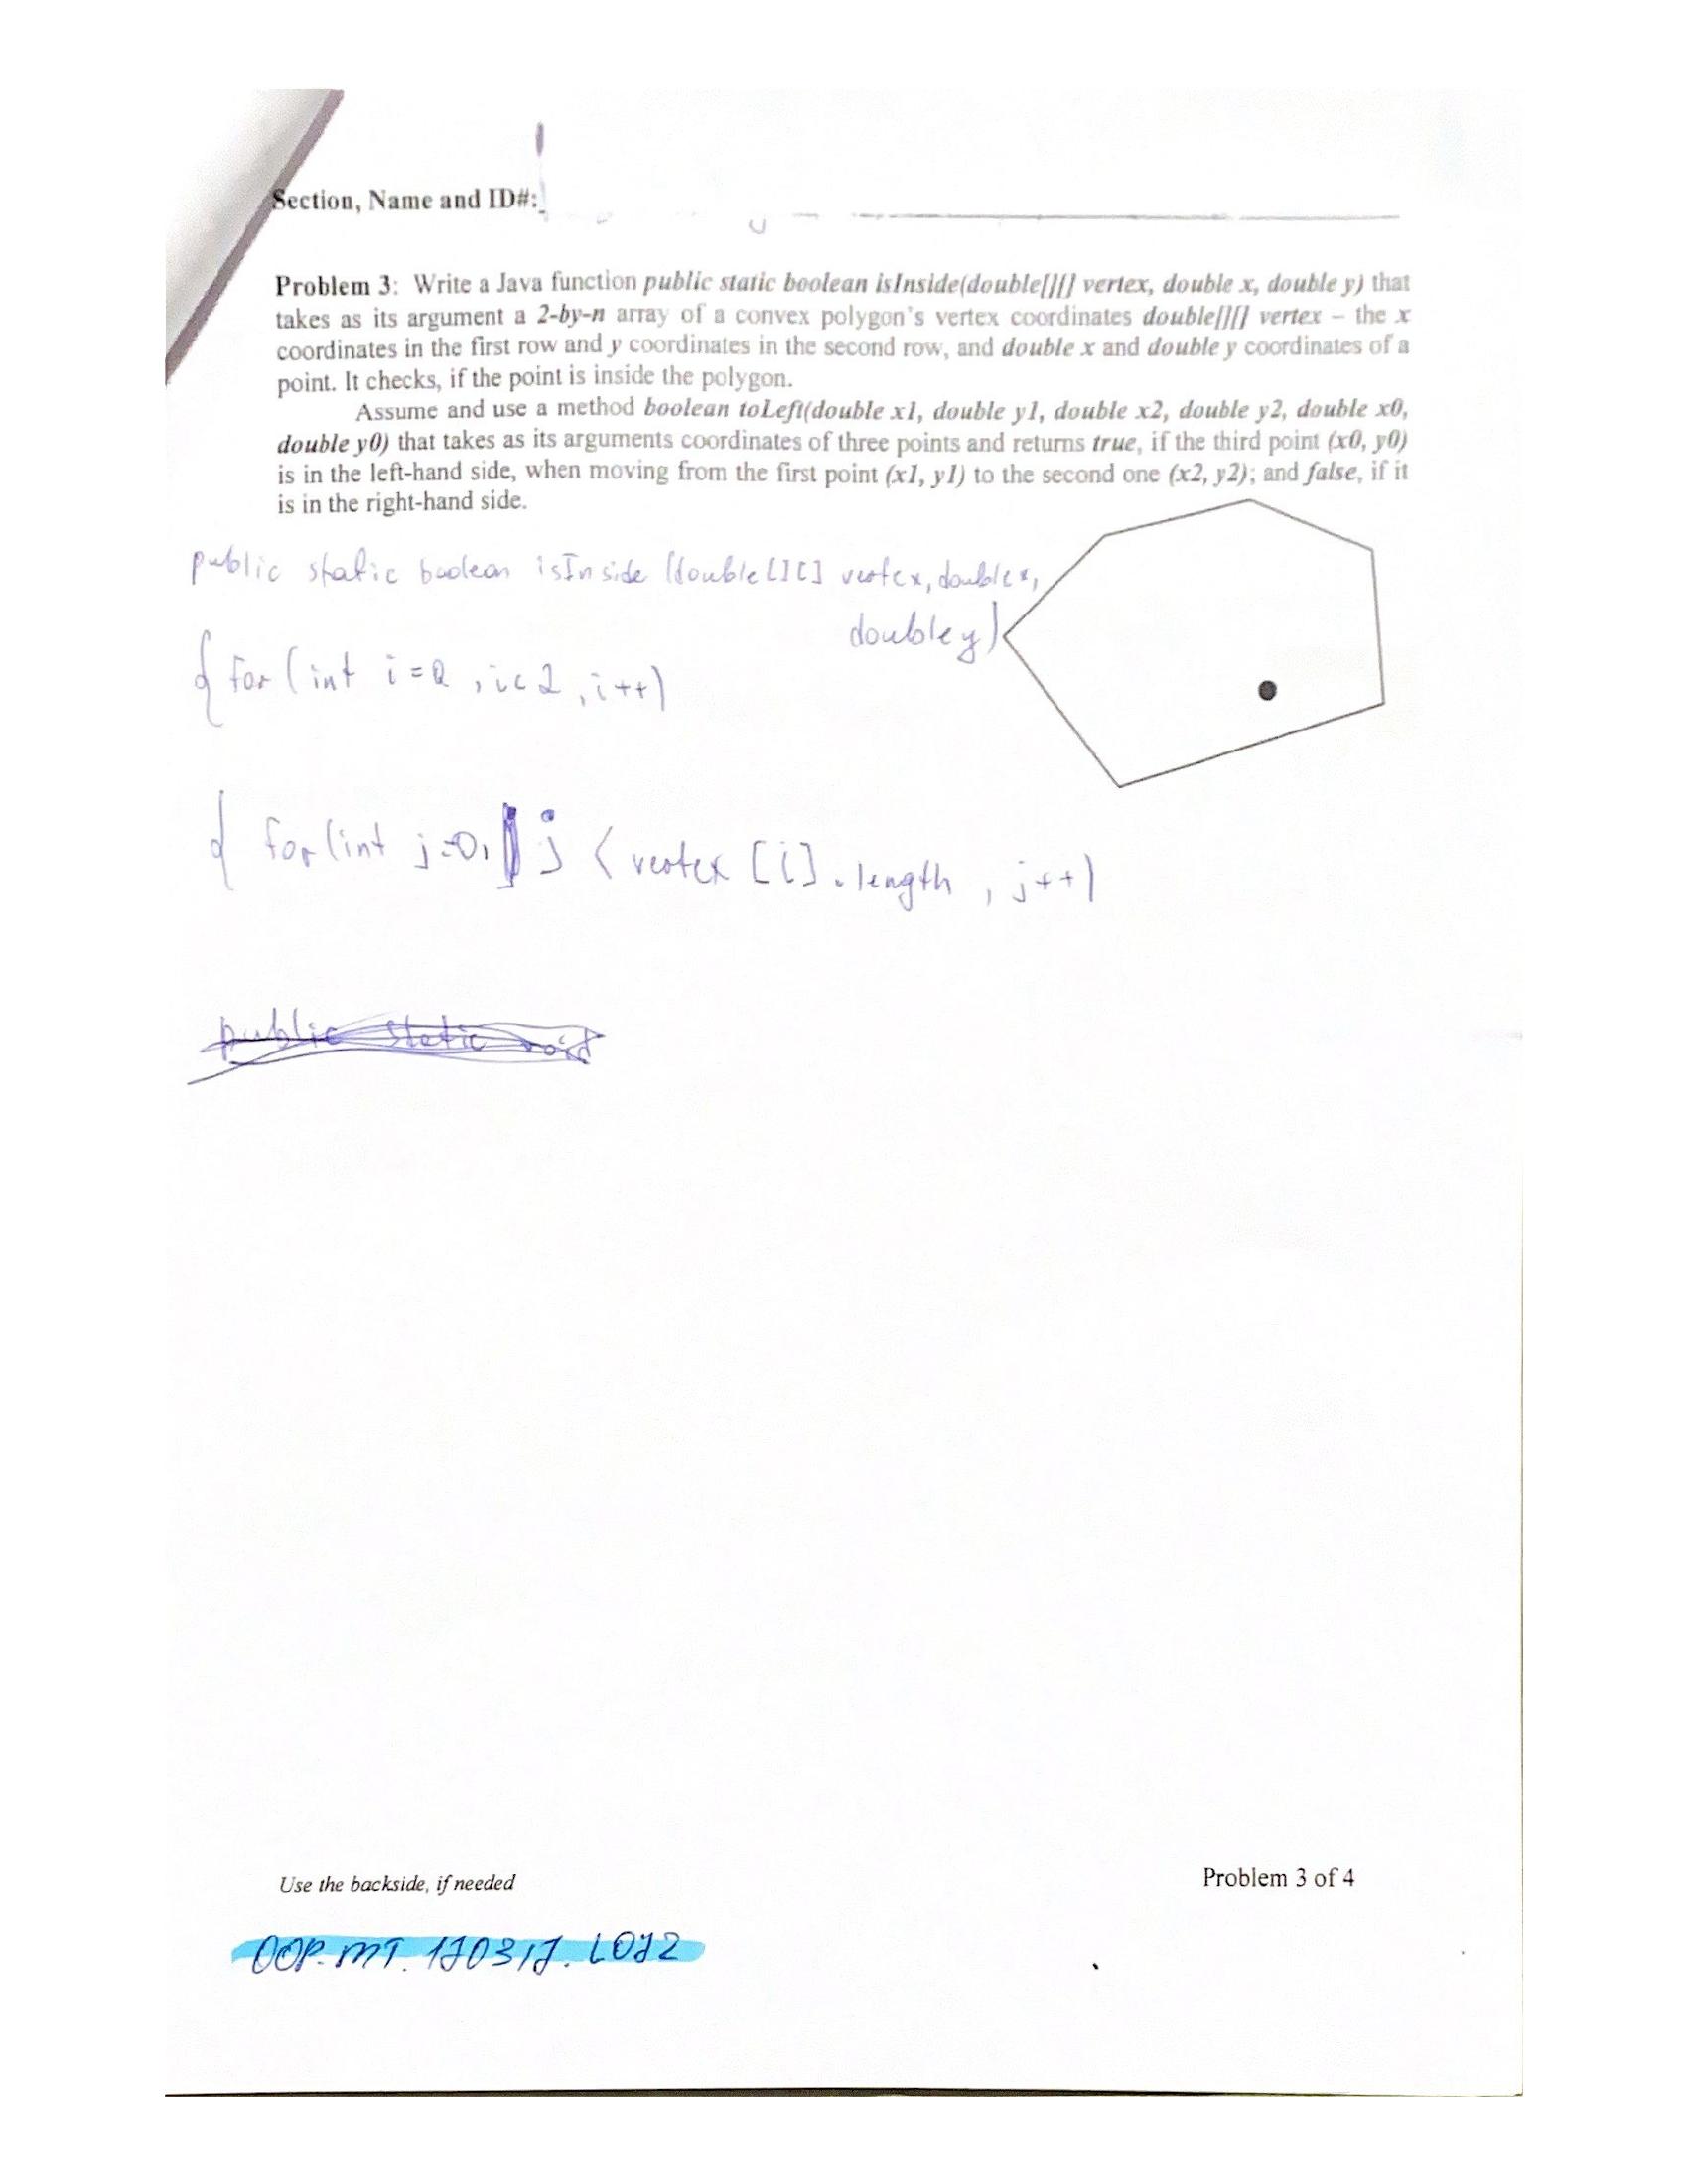 Section, Name and ID#:
Problem 3: Write a Java function public static boolean isInside(double[][] vertex, double x, double y) that
takes as its argument a 2-by-n array of a convex polygon's vertex coordinates double[][] vertex – the x
coordinates in the first row and y coordinates in the second row, and double x and double y coordinates of a
point. It checks, if the point is inside the polygon.
Assume and use a method boolean toLeft(double x1, double y1, double x2, double y2, double x0,
double y0) that takes as its arguments coordinates of three points and returns true, if the third point (x0, y0)
is in the left-hand side, when moving from the first point (x1, y1) to the second one (x2, y2); and false, if it
is in the right-hand side.
public static boolean isInside (double[][] vertex, double x,
double y)
{ for (int i=0, i<2, i++)
{ for (int j=0, j < vertex [i].length, j++)
public static void
Use the backside, if needed
Problem 3 of 4
OOP.MT.170317.L072